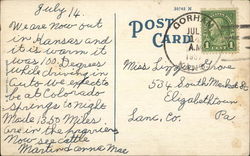 July 14.
We are Now out
in Kansas and
it is warm it
was 100 Degrees
while driving in
Auto we expect to
be at Colorado
Springs to night
Made 1350 Miles.
are in the prairies
Now see cattle
Martin & Anna Mae
POST
CARD
GORHAM
JUL
A.M.
Miss Lizzie Grove
534 South Market St
Elizabethtown
Lanc. Co. Pa